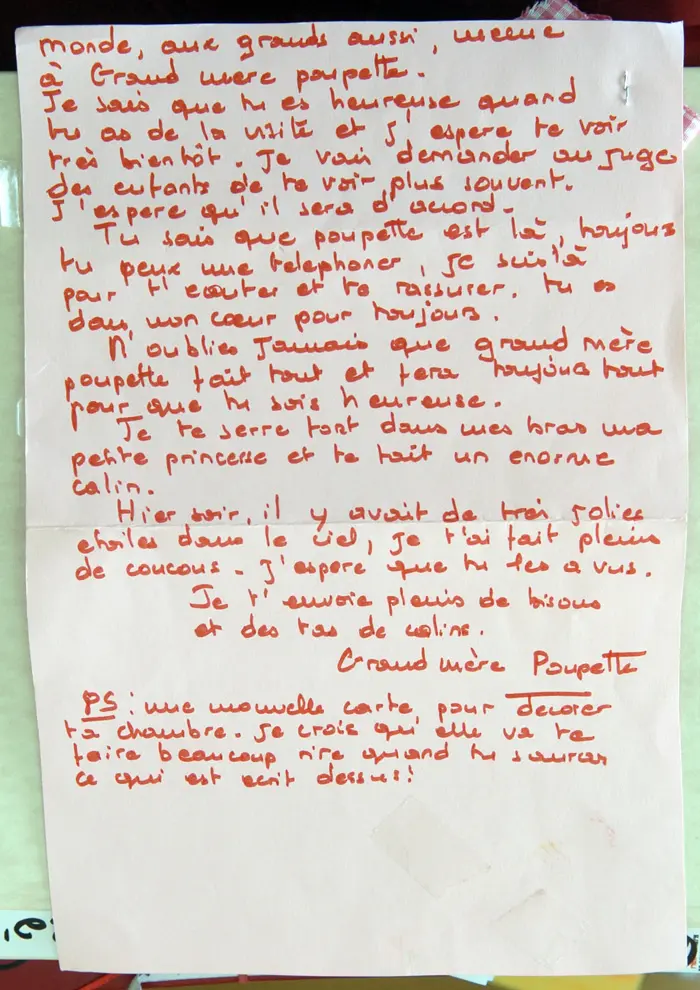 monde, aux grands aussi, meme
à Grand mere poupette.
Je sais que tu es heureuse quand
tu as de la visite et j'espere te voir
très bientôt. Je vais demander au juge
des enfants de te voir plus souvent.
J'espere qu'il sera d'accord.
Tu sais que poupette est là, toujours
tu peux me telephoner, je suis là
pour t'ecouter et te rassurer. tu es
dans mon cœur pour toujours.
N'oublies Jamais que grand mère
poupette fait tout et fera toujours tout
pour que tu sois heureuse.
Je te serre fort dans mes bras ma
petite princesse et te fait un enorme
calin.
Hier soir, il y avait de tres jolies
etoiles dans le ciel, je t'ai fait pleins
de coucous. J'espere que tu les a vus.
Je t'envoie pleins de bisous
et des tas de calins.
Grand mère Poupette
PS : une nouvelle carte pour decorer
ta chambre. Je crois qu'elle va te
faire beaucoup rire quand tu sauras
ce qui est ecrit dessus!